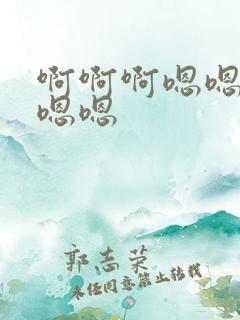 啊啊啊嗯嗯
嗯嗯
郭志荣
未经同意禁止转载